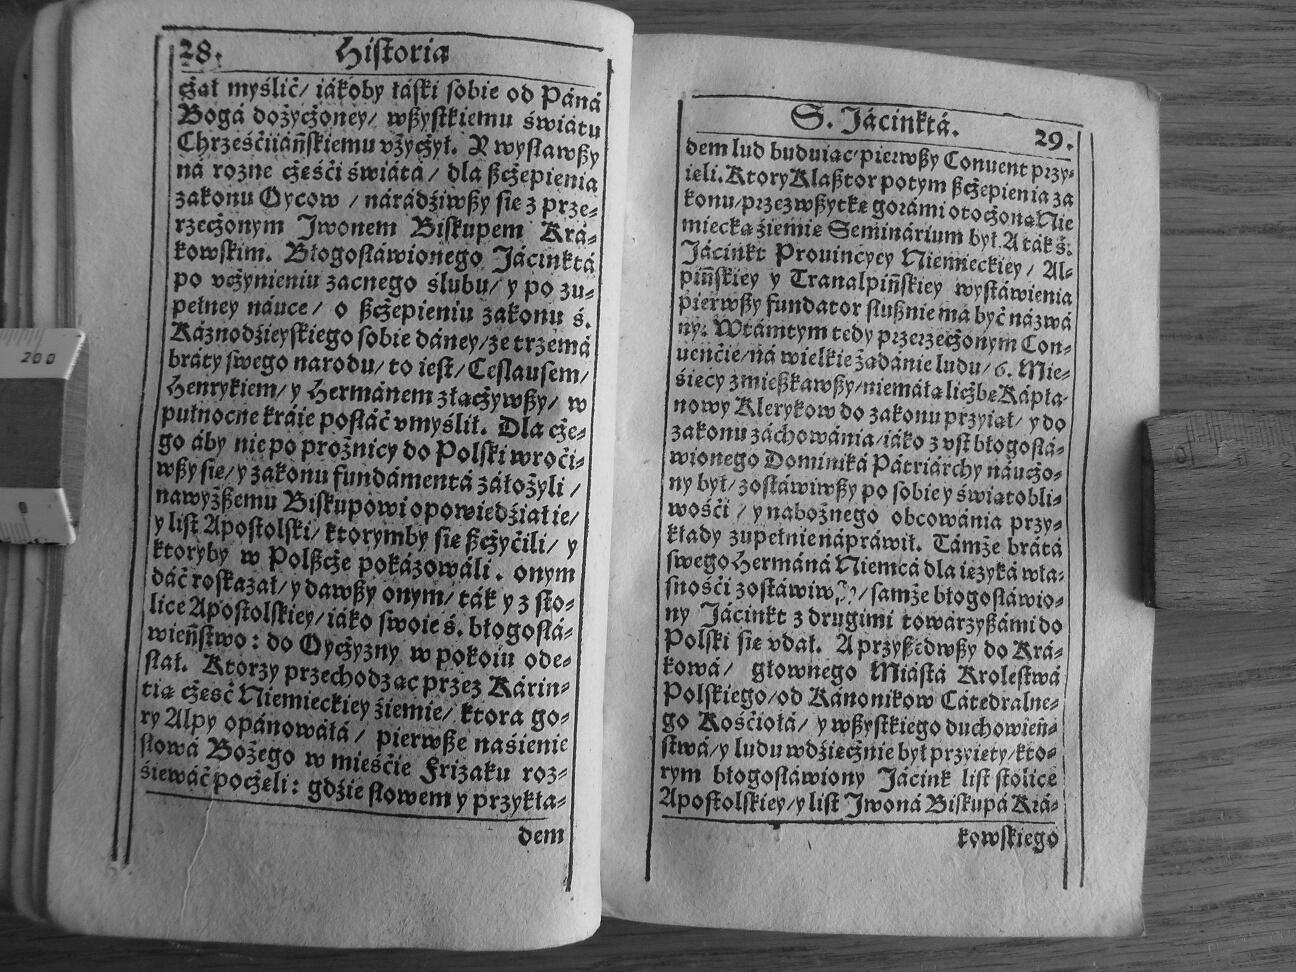 28.
Historia
cżał myślić/ iákoby łáski sobie od Páná
Bogá dożycżoney/ wßystkiemu świátu
Chrześćiiáńskiemu vżycżył. A wysławßy
ná rozne cżęśći świátá/ dla ßcżepienia
zakonu Oycow / nárádźiwßy sie z prze-
rzecżonym Jwonem Biskupem Krá-
kowskim. Błogosłáwionego Jácinktá
po vcżynieniu zacnego ślubu/ y po zu-
pełney náuce/ o ßcżepieniu zakonu ś.
Káznodźieyskiego sobie dáney/ ze trzemá
bráty swego narodu/ to iest/ Ceslausem/
Henrykiem/ y Hermánem złącżywßy/ w
pułnocne kráie posłáć vmyślił. Dla cże-
go áby nie po prożnicy do Polski wroći-
wßy sie/ y zakonu fundámentá záłożyli /
nawyżßemu Biskupowi opowiedźiał ie/
y list Apostolski/ ktorymby sie ßcżyćili/ y
ktoryby w Polßcże pokázowáli. onym
dáć roskazał/ y dawßy onym/ ták y z sto-
lice Apostolskiey/ iáko swoie ś. błogosłá-
wieństwo: do Oycżyzny w pokoiu ode-
słał. Ktorzy przechodząc przez Kárin-
tią cżęść Niemieckiey źiemie/ ktora go-
ry Alpy opánowáłá / pierwße naśienie
słowá Bożego w mieśćie Frizaku roz-
śiewáć pocżeli: gdźie słowem y przykła-
dem
200
0
S. Jácinktá.
29.
dem lud buduiąc/ pierwßy Conuent przy-
ieli. Ktory Klaßtor potym ßcżepienia za
konu/ przez wßytkę gorámi otocżoną Nie
miecką źiemię Seminárium był. A ták ś.
Jácinkt Prouincyey Niemieckiey / Al-
pińskiey y Tranalpińskiey wysłáwienia
pierwßy fundator słußnie má być názwá
ny. Wtámtym tedy przerzecżonym Con-
uenćie/ ná wielkie żadánie ludu/ 6. Mie-
śięcy zmießkawßy/ niemáłą licżbę Kápła-
nowy Klerykow do zakonu przyiął/ y do
zakonu záchowánia/ iáko z vst błogosłá-
wionego Dominiká Pátriárchy náucżo-
ny był/ zostáwiwßy po sobie y świątobli-
wośći / y nabożnego obcowánia przy-
kłady zupełnie nápráwił. Támże brátá
swego Hermáná Niemcá dla ięzyká wła-
snośći / samże błogosłáwio-
ny Jácinkt z drugimi towárzyßámi do
Polski sie vdał. A przyßedwßy do Krá-
kowá/ głownego Miástá Krolestwá
Polskiego/ od Kánonikow Cátedralne-
go Kośćiołá/ y wßystkiego duchowień-
stwá/ y ludu wdźięcżnie był przyięty/ kto-
rym błogosłáwiony Jácink list stolice
Apostolskiey/ y list Jwoná Biskupá Krá-
kowskiego